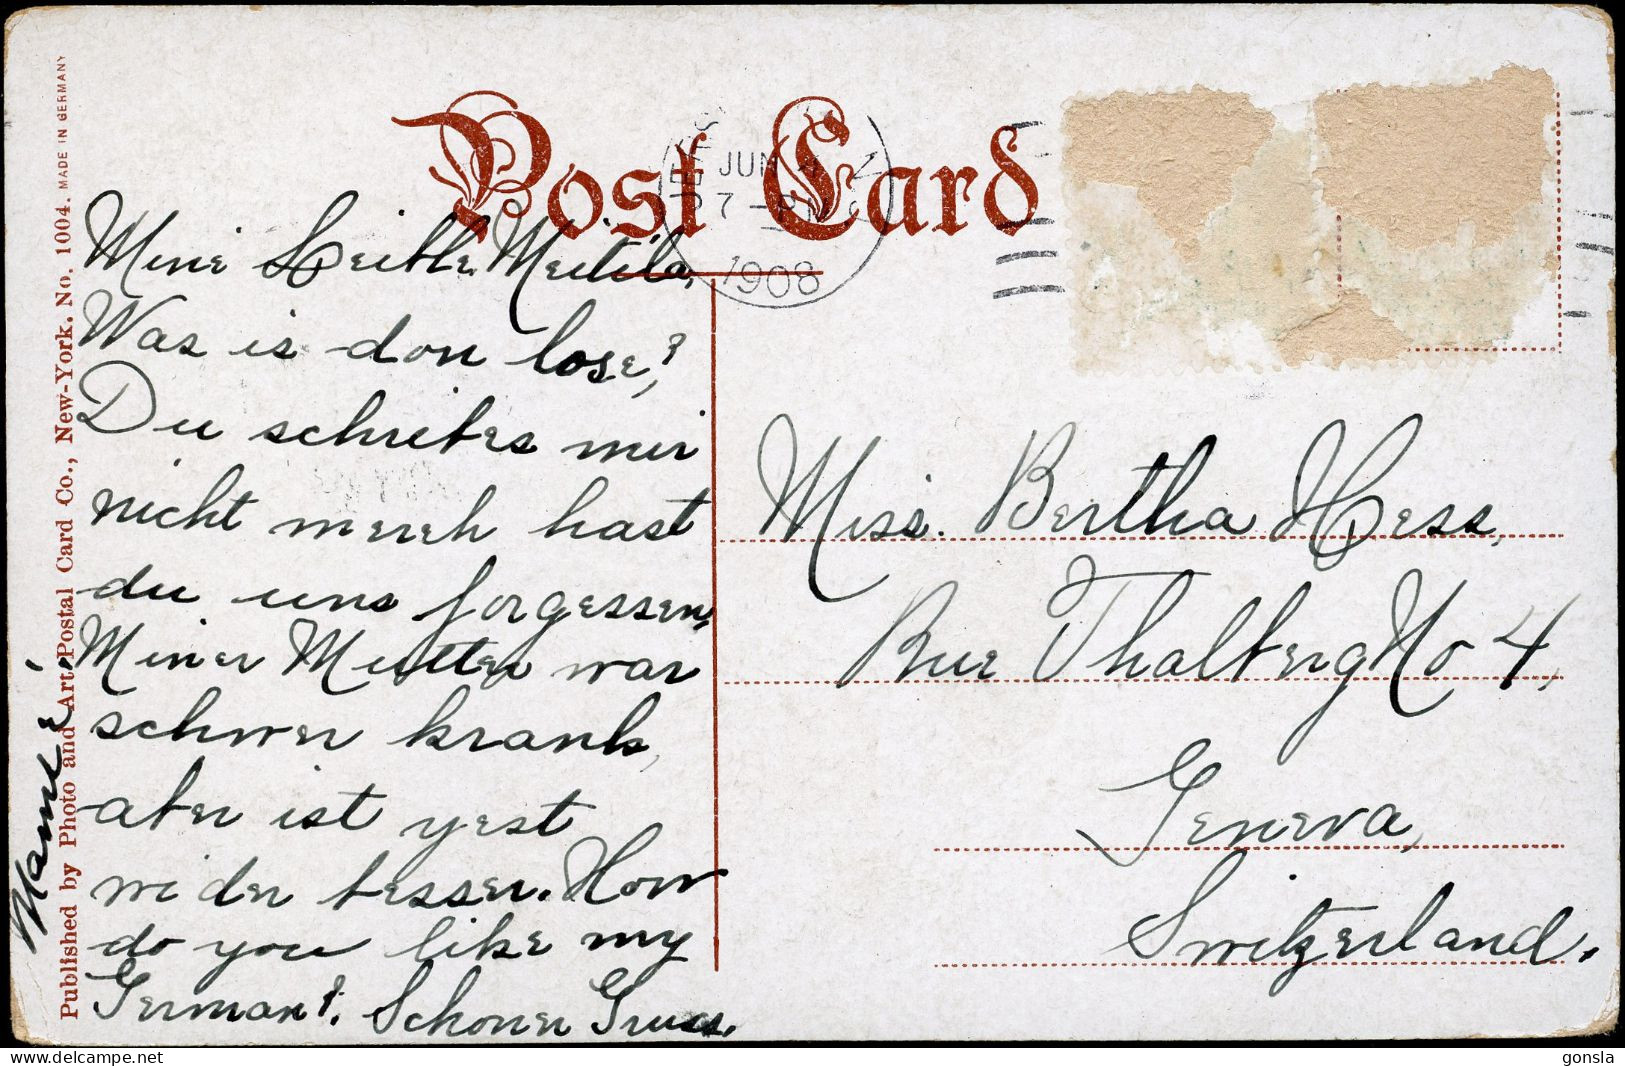 Post Card
JUN 4
7 - PM
1908
Mine Leible Meitila,
Was is don lose,?
Du schreibes mir
nicht mereh hast
du uns forgessen,
Miner Mutter war
schwer krank,
aber ist yest
wider besser. How
do you like my
German?. Schoner Gruss.
Mamie.
Miss. Bertha Hess,
Rue Thalberg No 4,
Geneva,
Switzerland.
Published by Photo and Art Postal Card Co., New-York. No. 1004. MADE IN GERMANY
gonsla